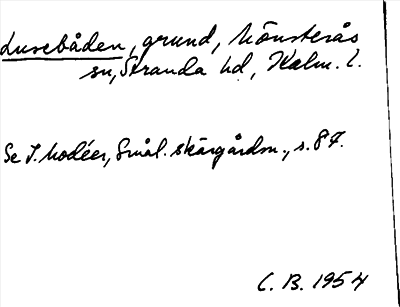 Lusebåden, grund, Mönsterås
sn, Stranda hd, Kalm. l.
Se I. Modéer, Smål. skärgårdsn., s. 87.
C. B. 1954